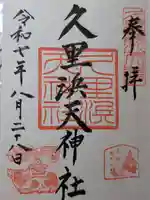 奉拝
久里浜天神社
令和七年八月二十八日